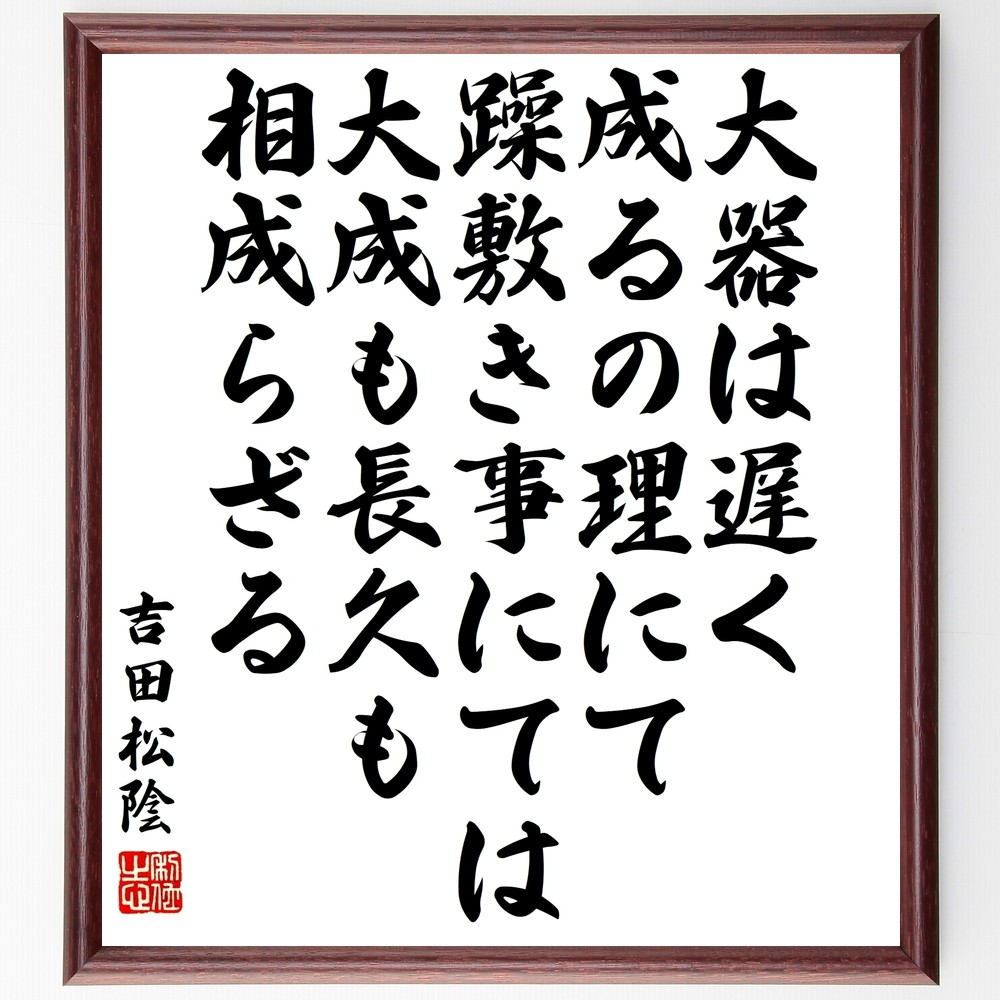 大器は遅く
成るの理にて
躁敷き事にては
大成も長久も
相成らざる
吉田松陰